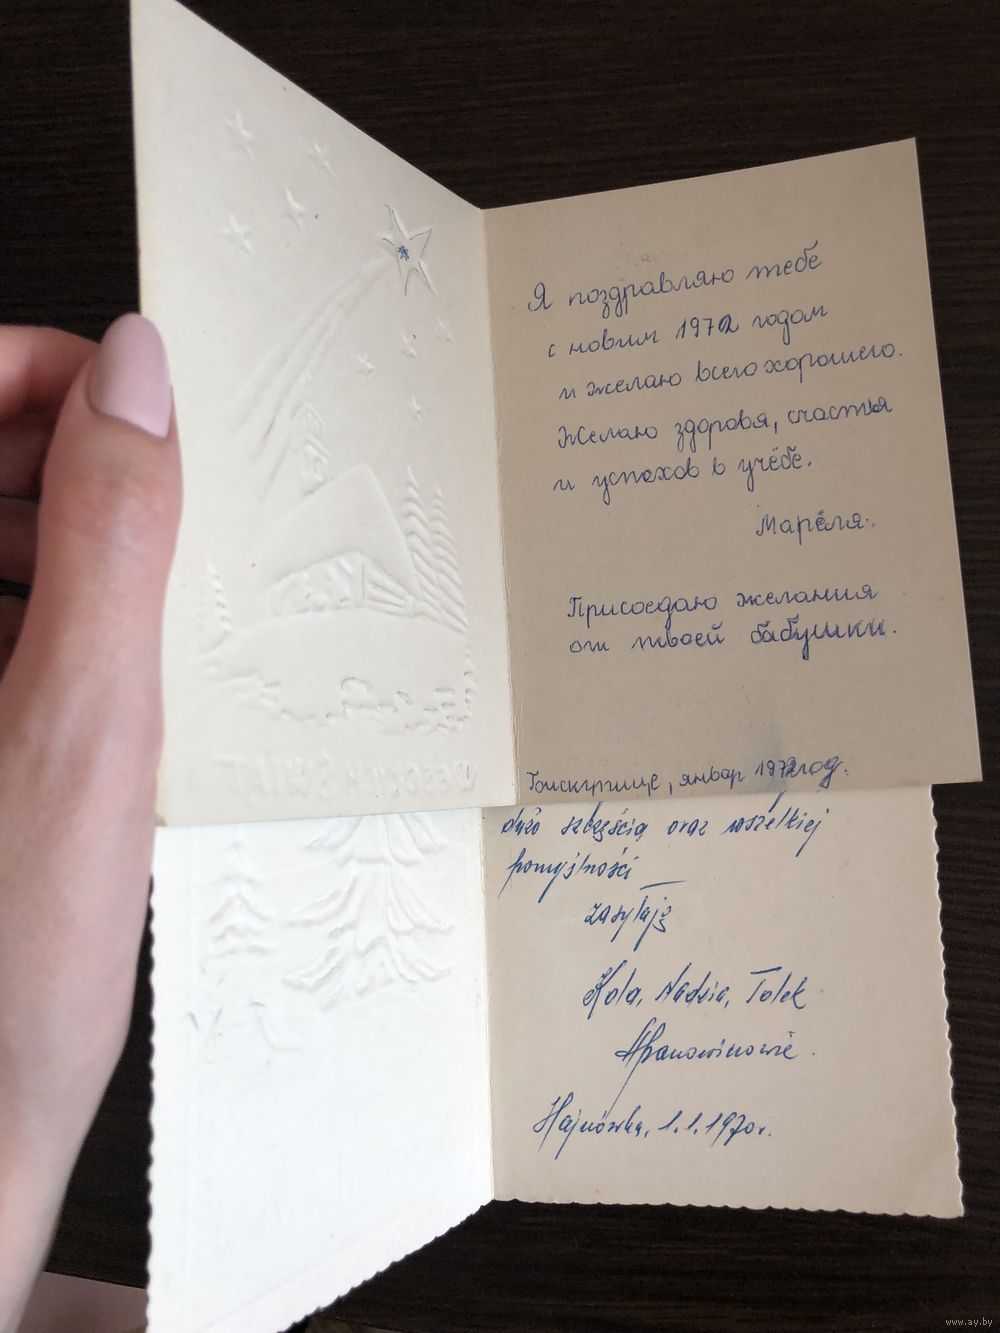 Я поздравляю тебе
с новим 1972 годом
и желаю всего хорошего.
Желаю здоровя, счастья
и успехов в учёбе.
Марёля.
Присоедаю желания
от твоей бабушки.
январ 1972 год.
dużo szczęścia oraz wszelkiej
pomyślności
zasyłają
Kola, Nadzia, Tolek
Hajnówka, 1.1.1970r.
WESOŁYCH ŚWIĄT
www.ay.by